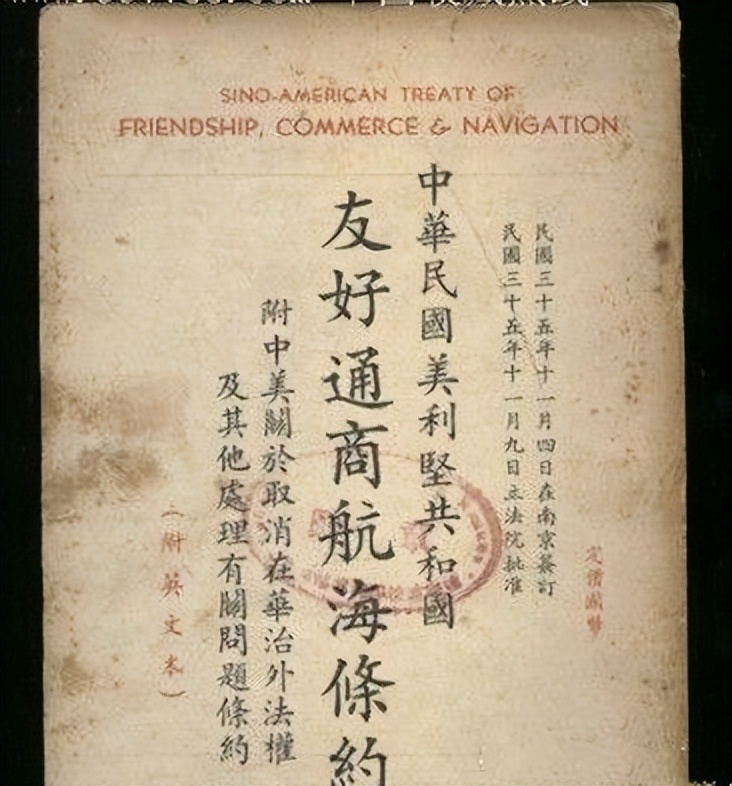 SINO-AMERICAN TREATY OF
FRIENDSHIP, COMMERCE & NAVIGATION
定價國幣
民國三十五年十一月四日在南京簽訂
民國三十五年十一月九日立法院批准
中華民國美利堅共和國
友好通商航海條約
附中美關於取消在華治外法權
及其他處理有關問題條約
(附英文本)